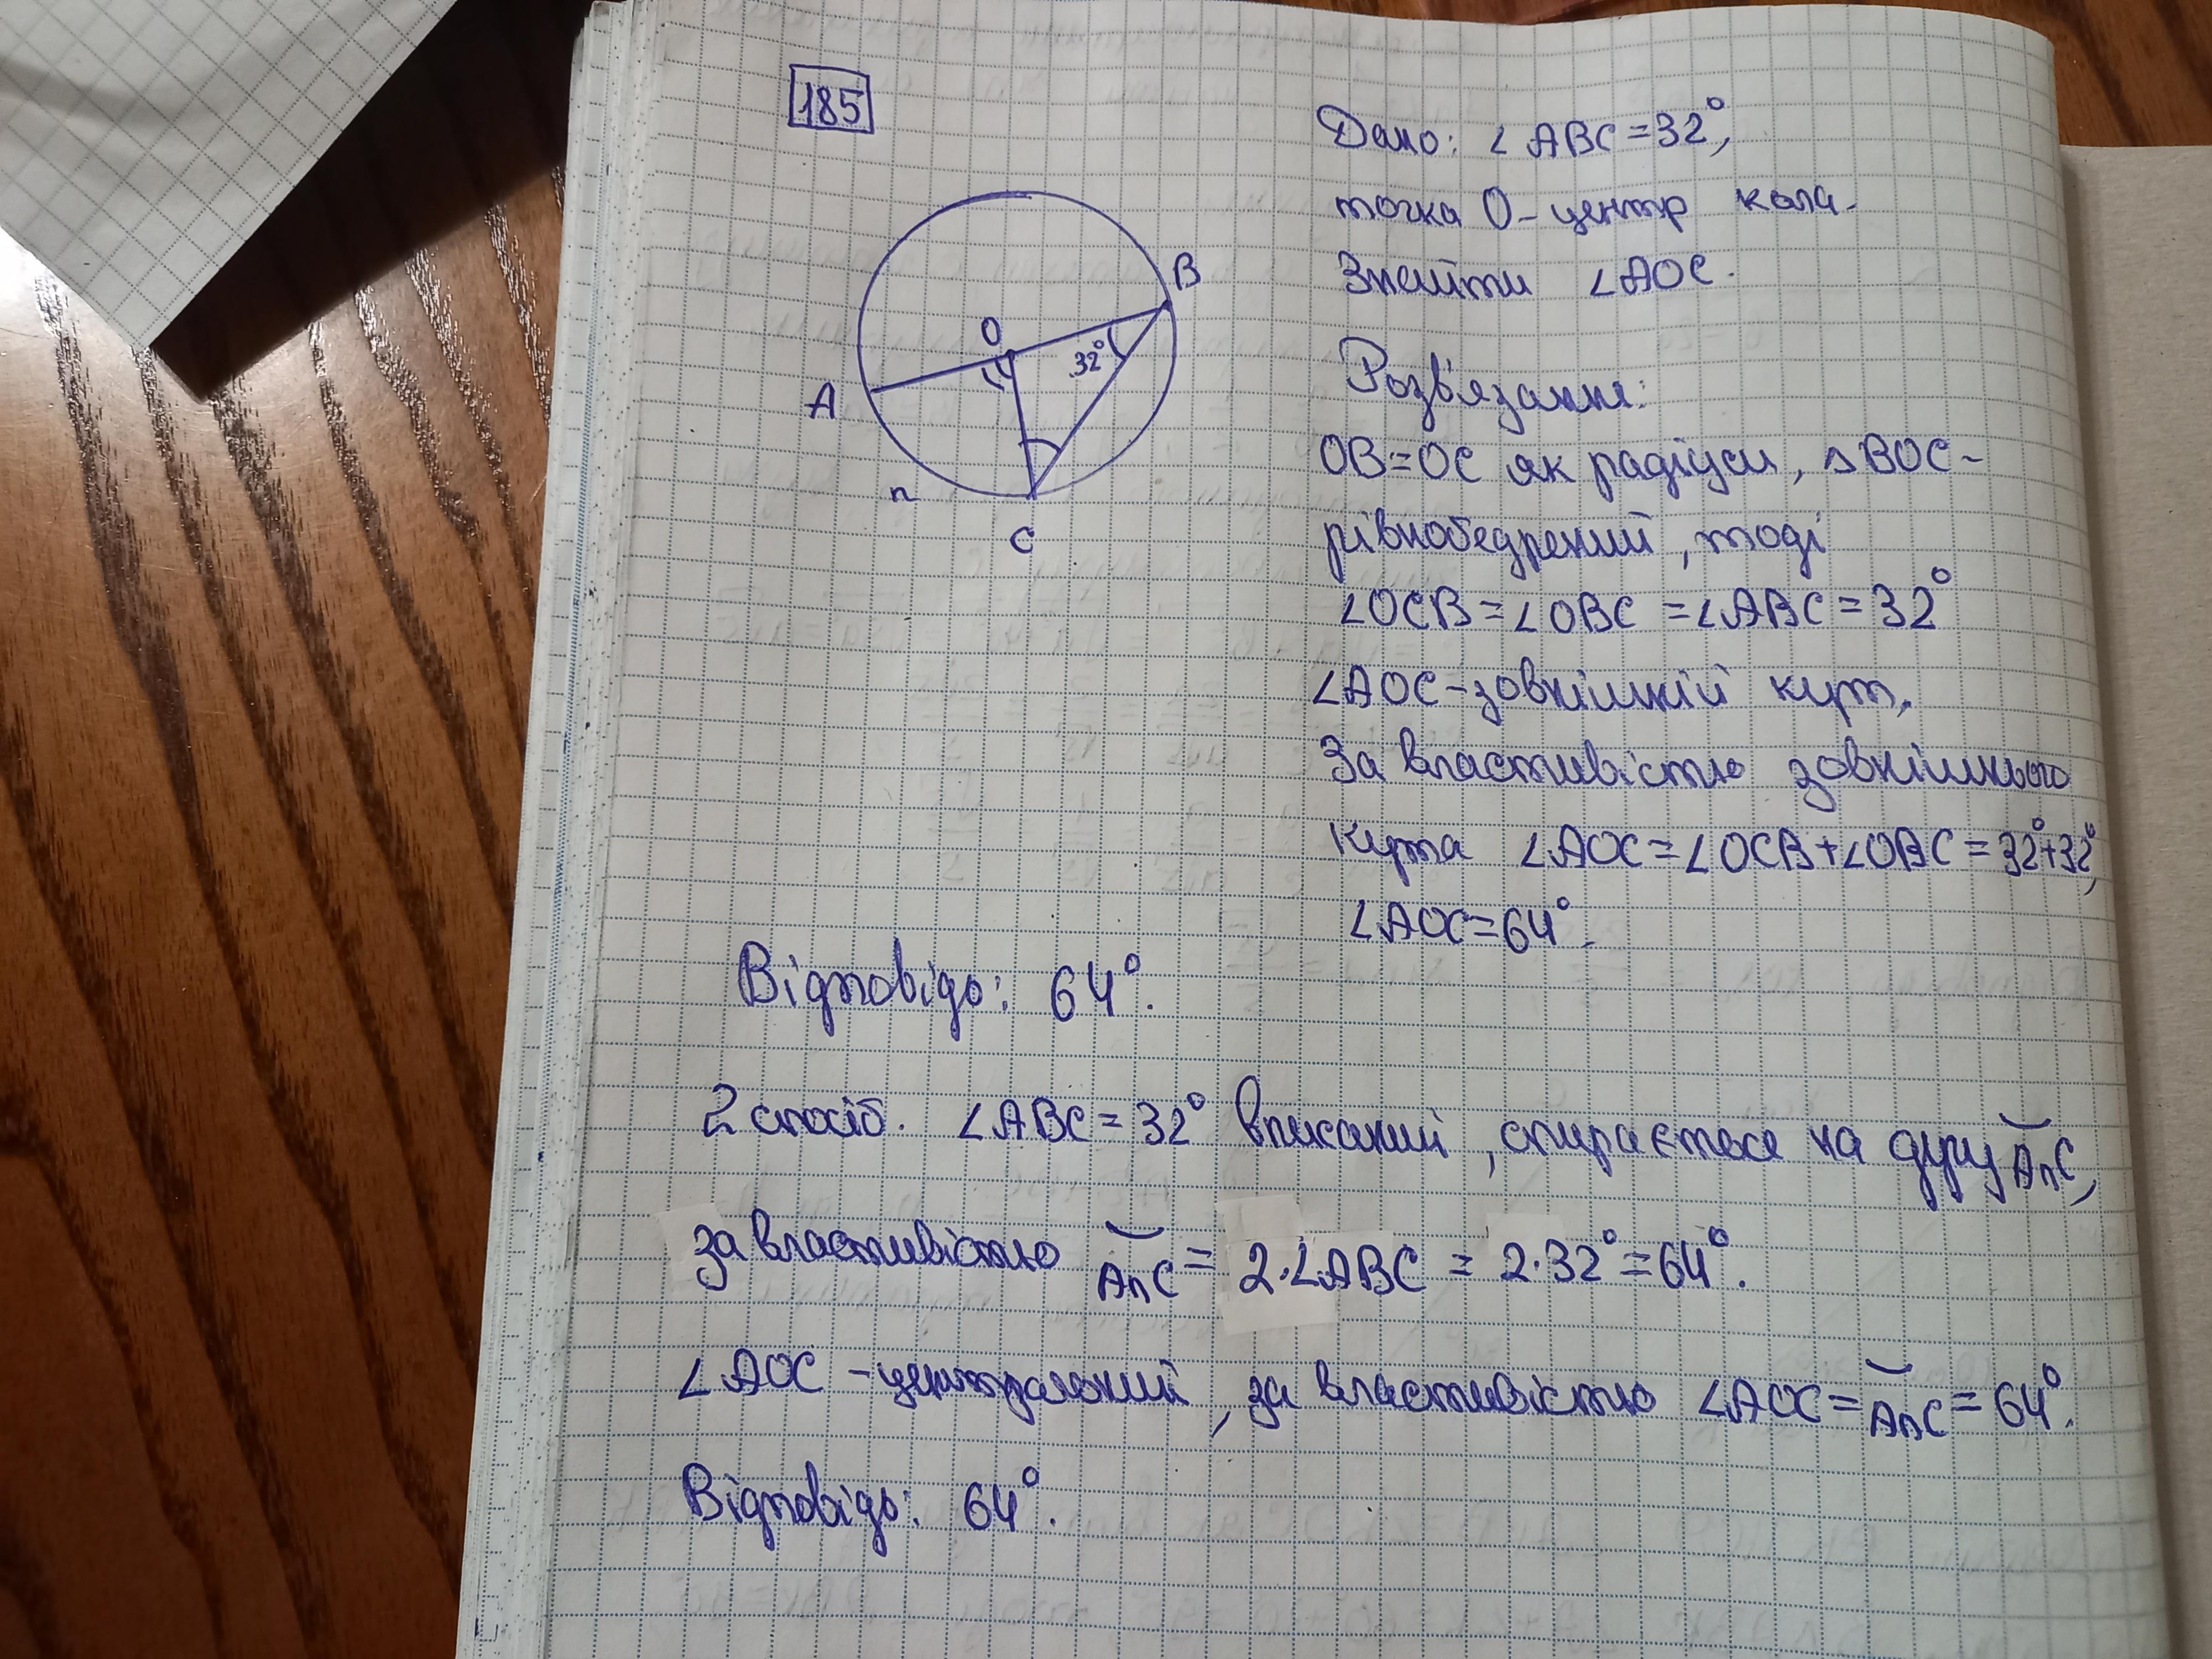 185
Дано: ∠ABC=32°,
точка O - центр кола.
Знайти ∠AOC.
B
O
32°
A
n
C
Розв'язання:
OB=OC як радіуси, △BOC-
рівнобедрений, тоді
∠OCB=∠OBC=∠ABC=32°
∠AOC-зовнішній кут.
За властивістю зовнішнього
кута ∠AOC=∠OCB+∠OBC=32°+32°,
∠AOC=64°.
Відповідь: 64°.
2 спосіб. ∠ABC=32° вписаний, спирається на дугу ◡AnC,
за властивістю ◡AnC = 2·∠ABC = 2·32°=64°.
∠AOC - центральний, за властивістю ∠AOC=◡AnC=64°.
Відповідь: 64°.